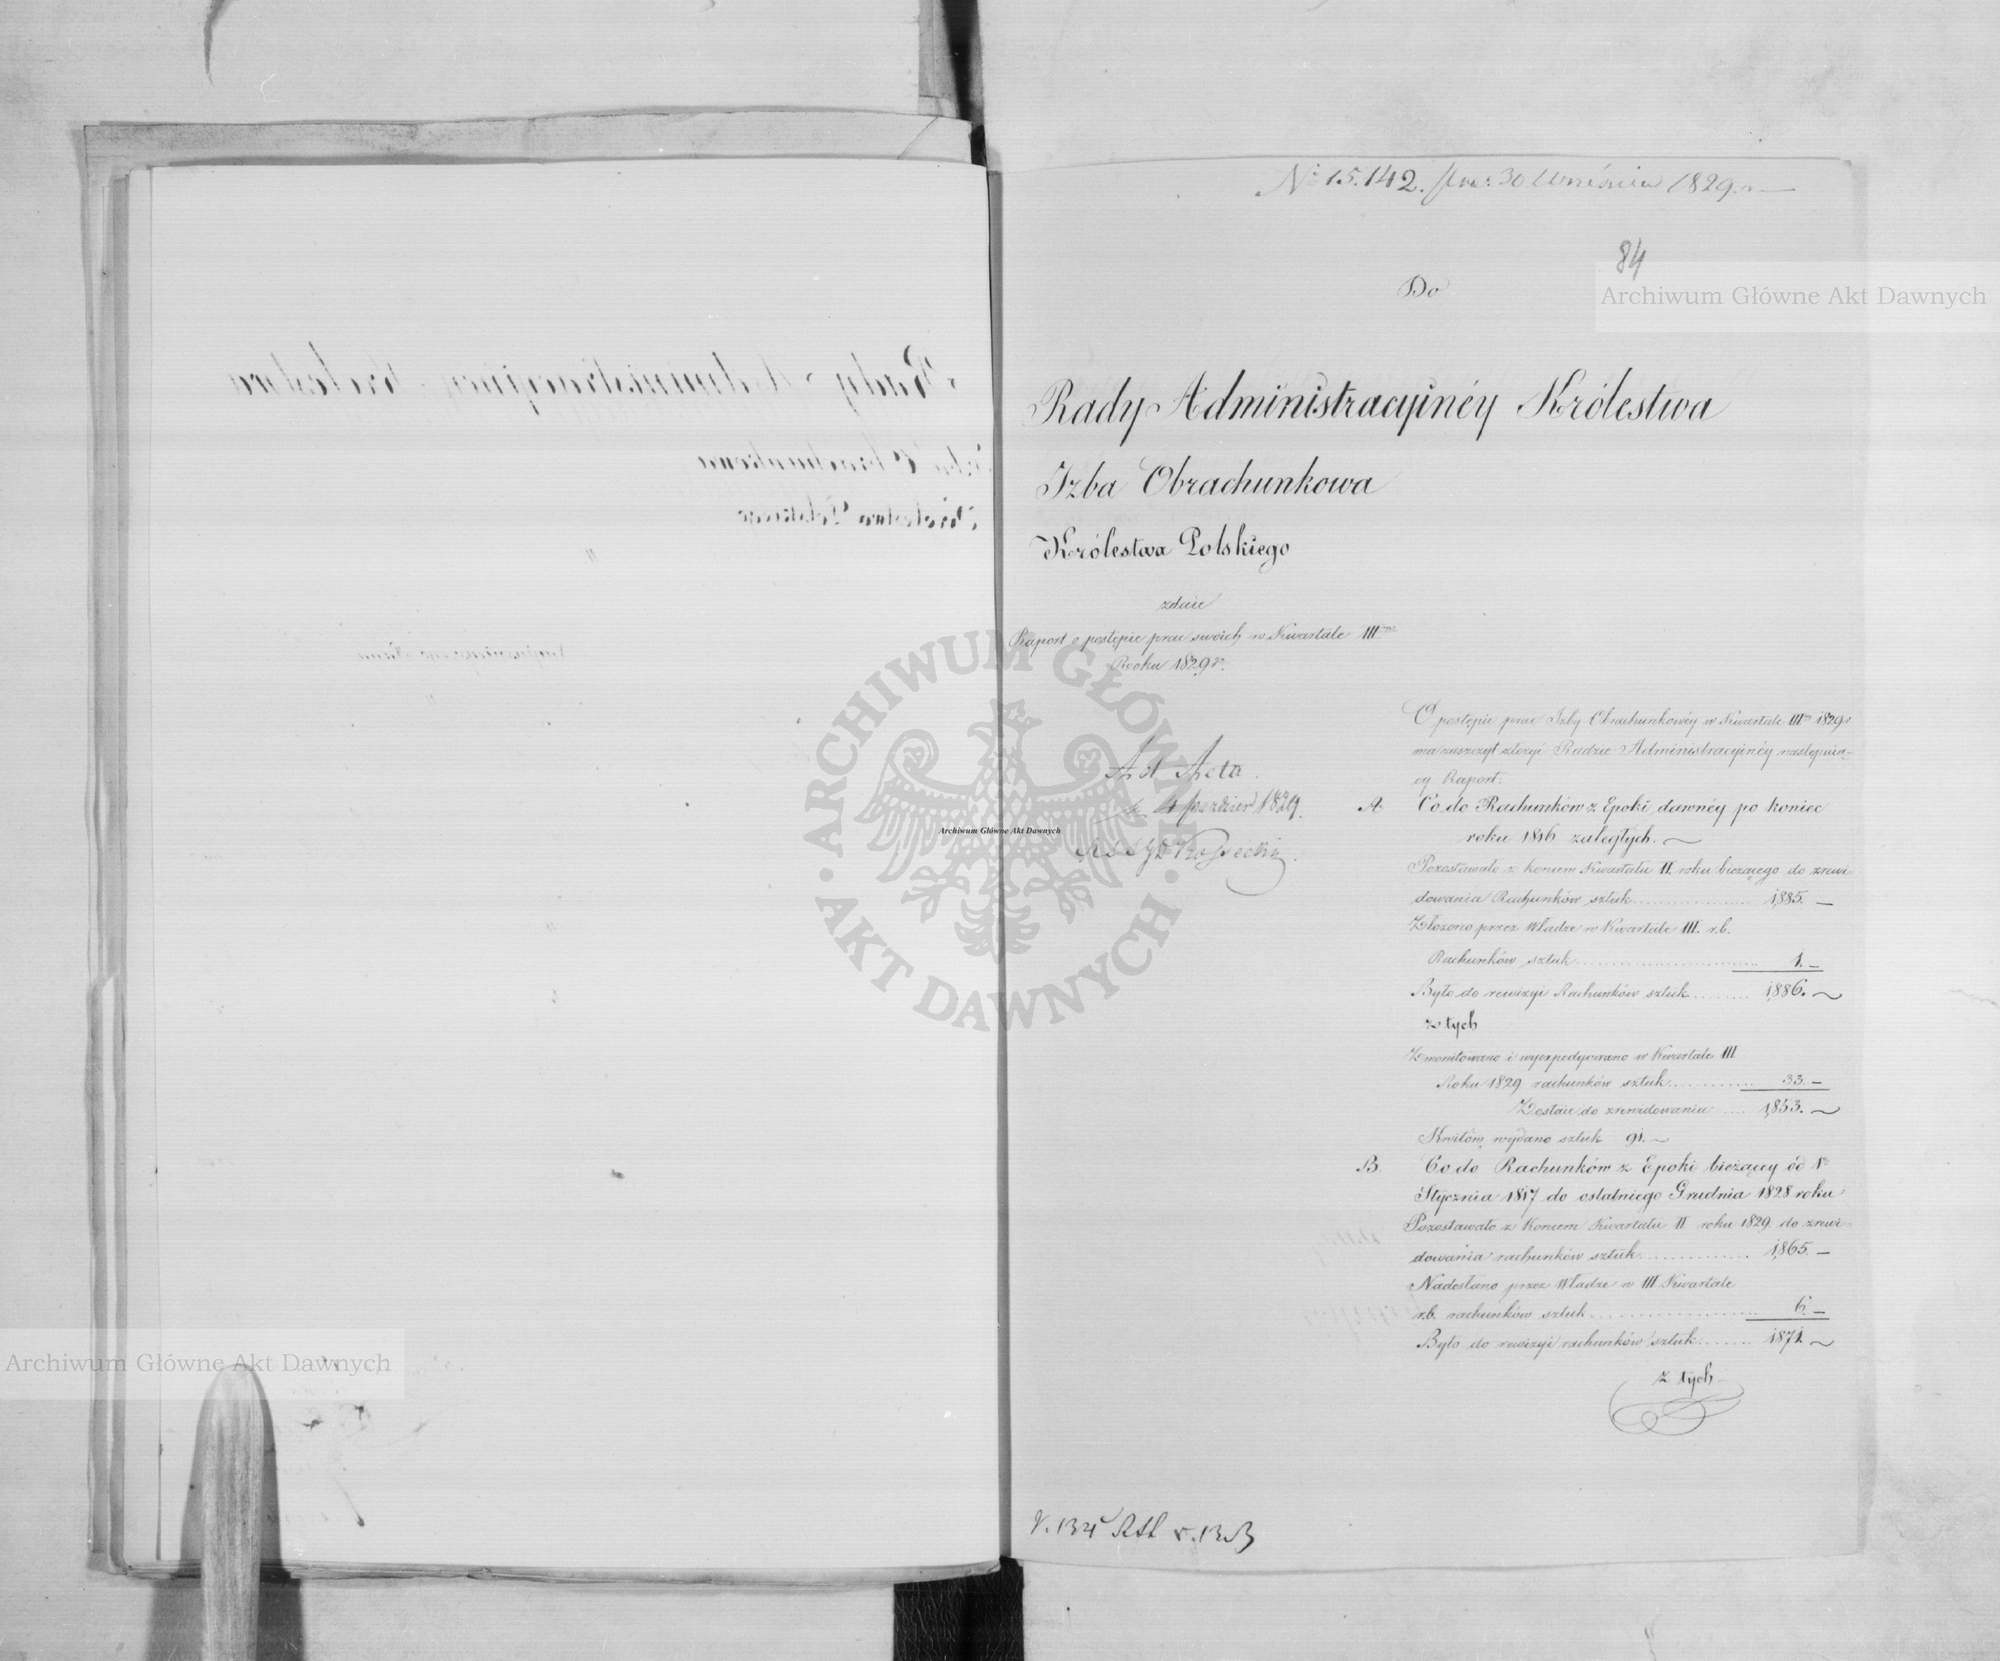 № 15.142. pra: 30 Września 1829. r
84
Do
Rady Administracyinéy Królestwa
Izba Obrachunkowa
Królestwa Polskiego
zdaie
Raport o postępie prac swoich w Kwartale III
Roku 1829 r.
Ad Acta.
4 Paździer 1829.
Kossecki
O postępie prac Izby Obrachunkowéy w Kwartale III 1829 r
ma zaszczyt złożyć Radzie Administracyinéy następuią-
cy Raport.
A. Co do Rachunków z Epoki dawnéy po koniec
roku 1816 zaległych.
Pozostawało z końcem Kwartału II. roku bieżącego do zrewi-
dowania Rachunków sztuk 1,885. —
Złożono przez Władze w Kwartale III. r.b.
Rachunków sztuk 1. —
Było do rewizyi Rachunków sztuk 1,886.
z tych
Zmonitowano i wyexpedyowano w Kwartale III
Roku 1829 rachunków sztuk 33. —
Zostaie do zrewidowania 1,853.
Kwitów wydano sztuk 91.
B. Co do Rachunków z Epoki bieżący od 1º
Stycznia 1817 do ostatniego Grudnia 1828 roku
Pozostawało z Końcem Kwartału II roku 1829 do zrewi-
dowania rachunków sztuk 1,865. —
Nadesłano przez Władze w III Kwartale
r.b. rachunków sztuk 6. —
Było do rewizyi rachunków sztuk 1871.
z tych
Archiwum Główne Akt Dawnych
Archiwum Główne Akt Dawnych
Archiwum Główne Akt Dawnych
ARCHIWUM GŁÓWNE
AKT DAWNYCH